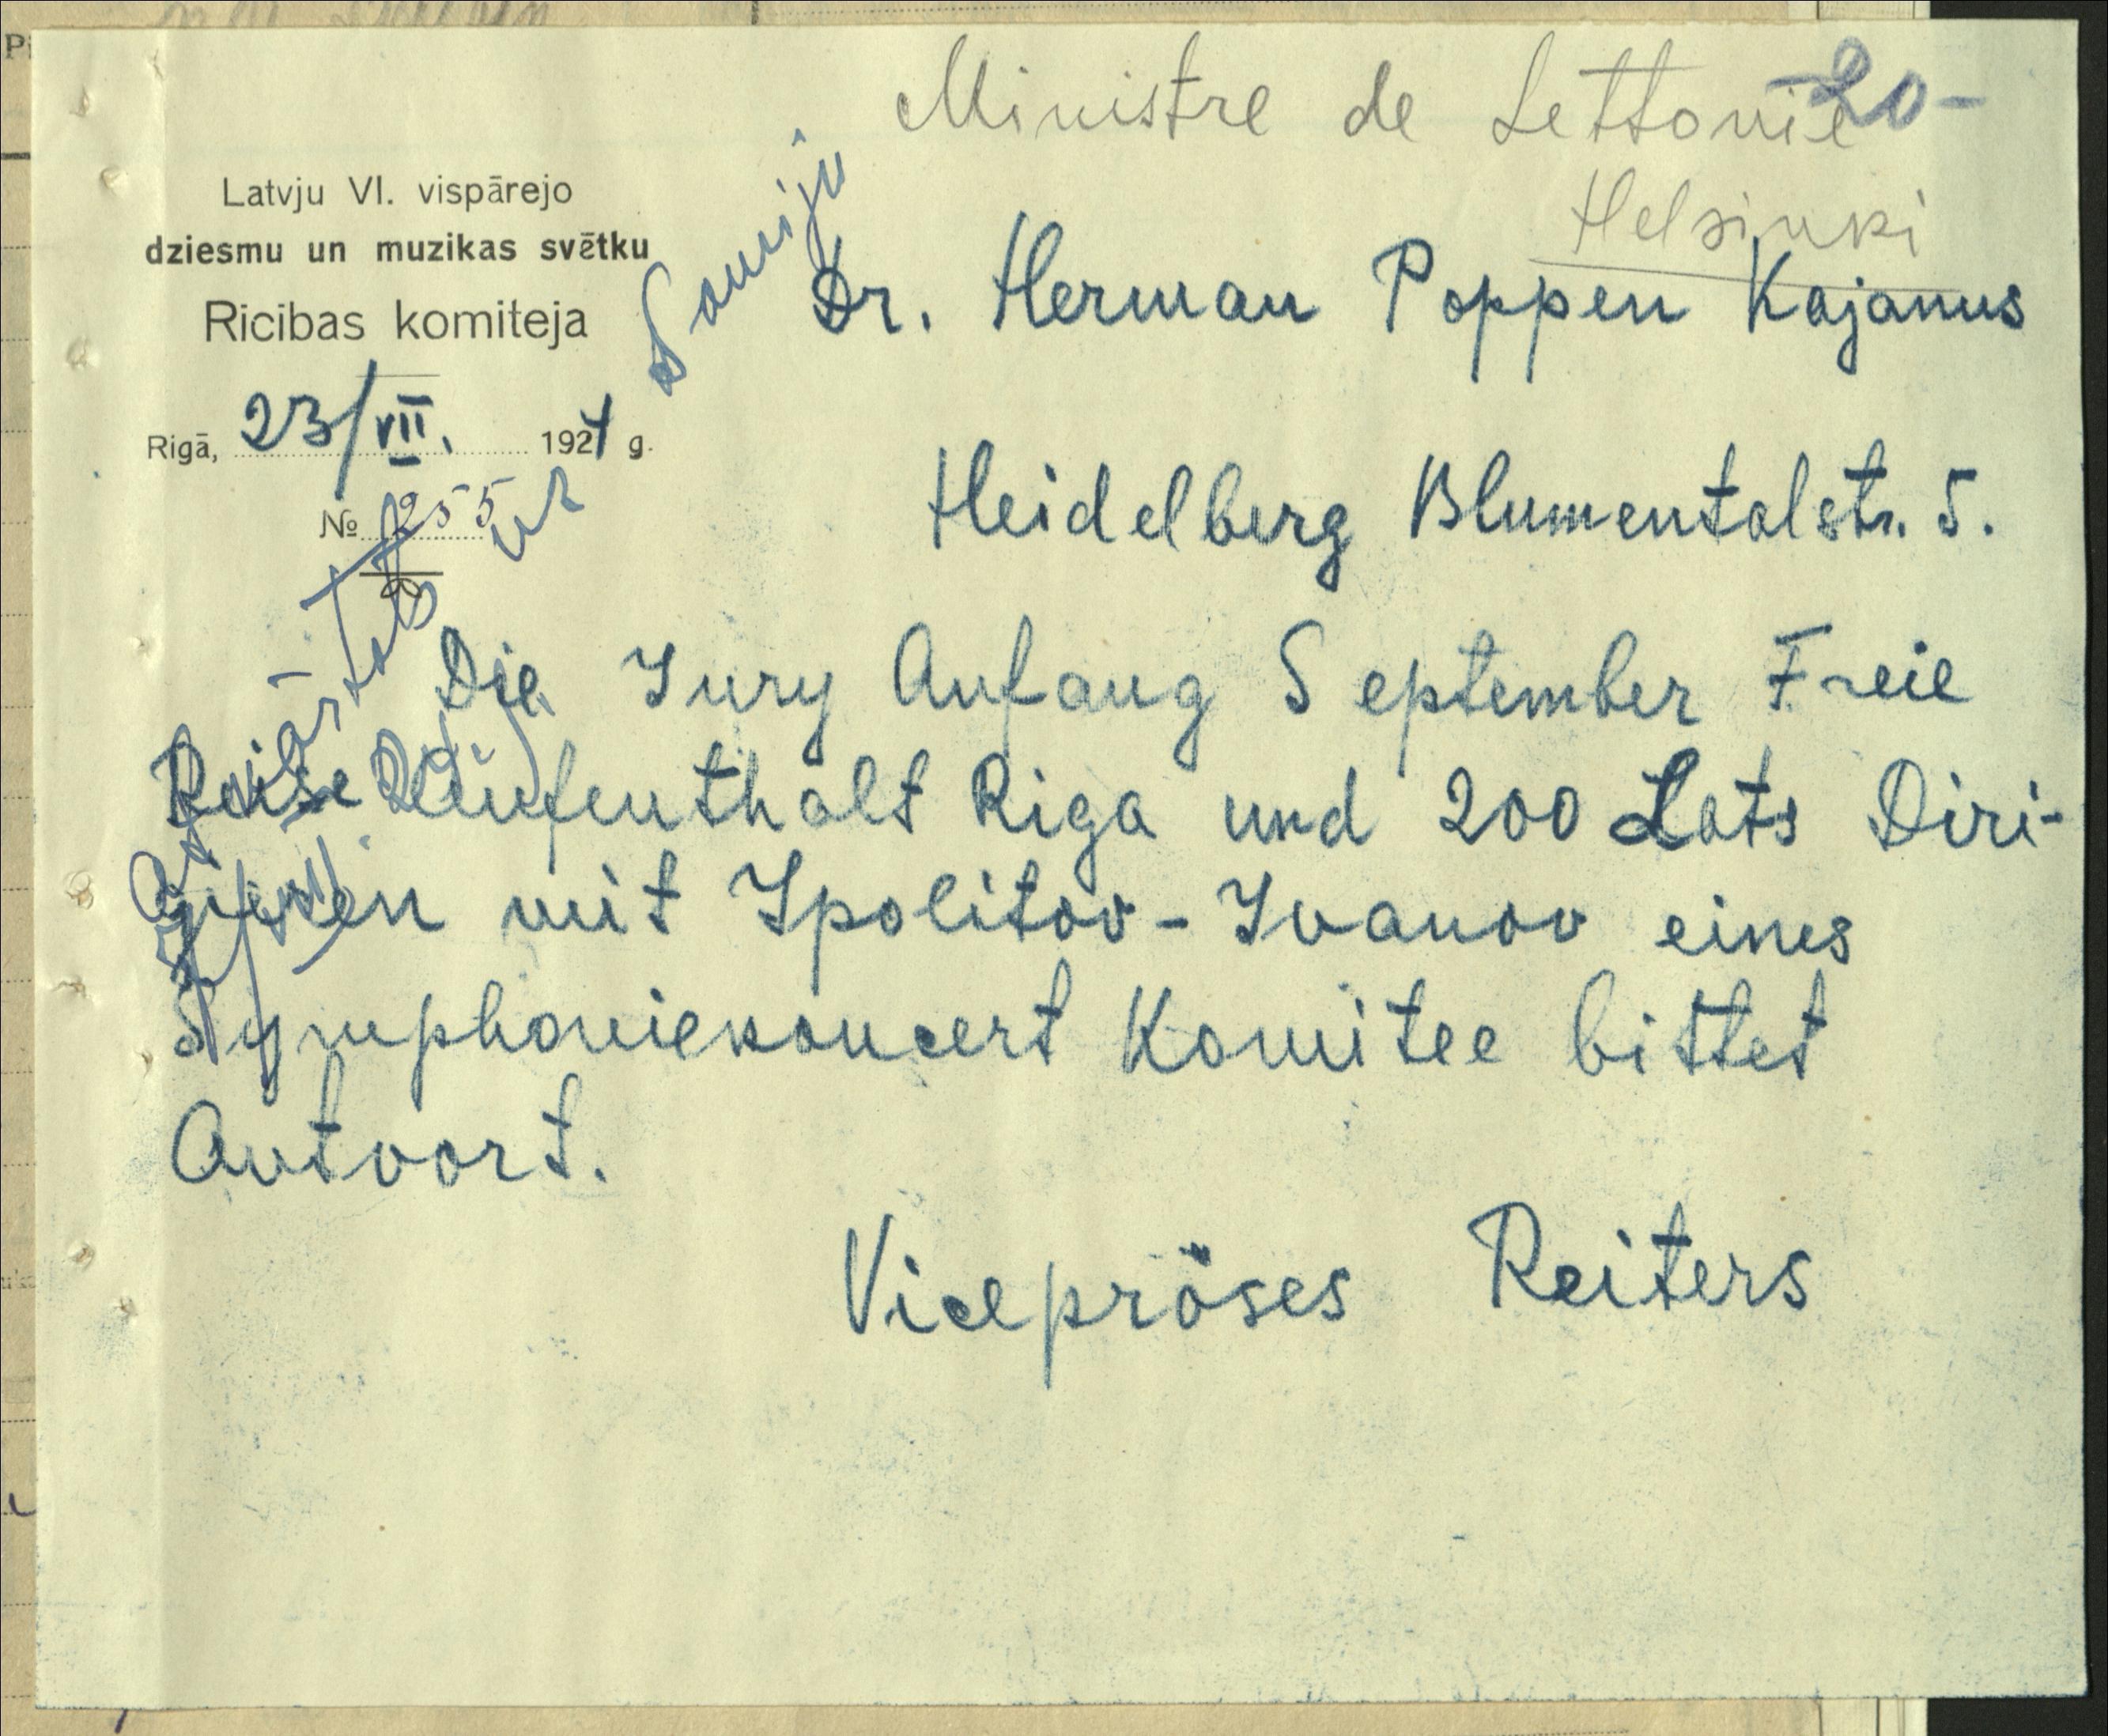 Ministre de Lettonie
20-
Helsinki
Latvju VI. vispārejo
dziesmu un muzikas svētku
Rīcības komiteja
Somiju
Dr. Herman Poppen Kajanus
Rigā, 23/VII. 1924 g.
№ 255
Heidelberg Blumentalstr. 5.
Die Jury Anfang September Freie
Reise Aufenthalt Riga und 200 Lats Diri-
gieren mit Ipolitov-Ivanov eines
Symphoniekoncert Komitee bittet
Antvort.
Vicepröses Reiters